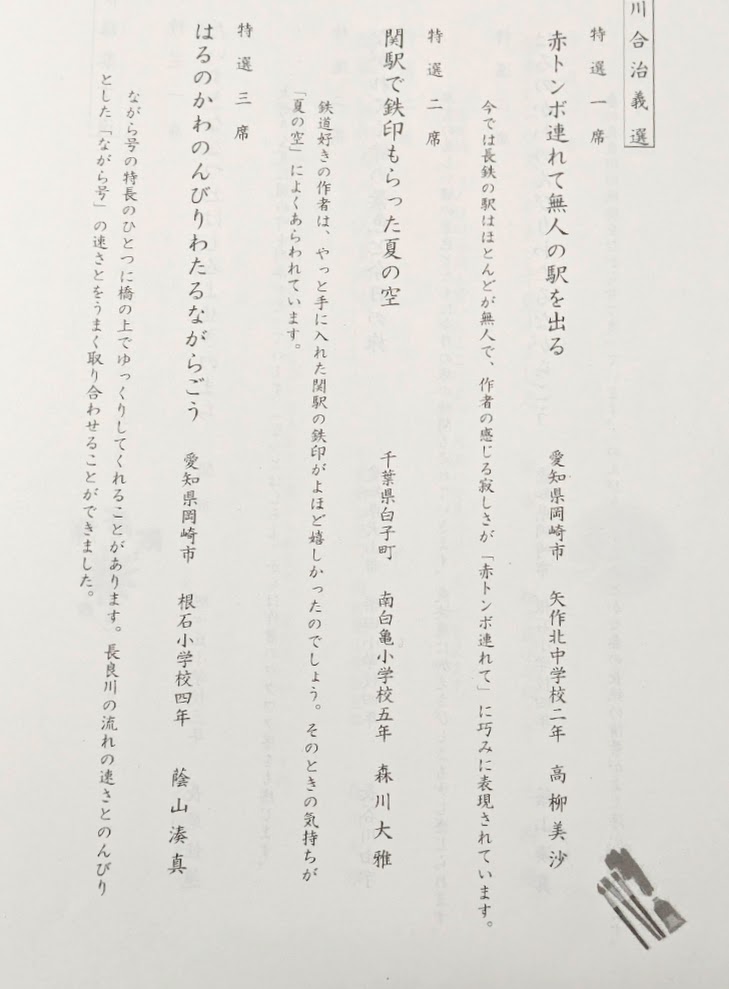 川合治義選
特選一席
赤トンボ連れて無人の駅を出る 愛知県岡崎市 矢作北中学校二年 高柳美沙
今では長鉄の駅はほとんどが無人で、作者の感じる寂しさが「赤トンボ連れて」に巧みに表現されています。
特選二席
関駅で鉄印もらった夏の空 千葉県白子町 南白亀小学校五年 森川大雅
鉄道好きの作者は、やっと手に入れた関駅の鉄印がよほど嬉しかったのでしょう。そのときの気持ちが
「夏の空」によくあらわれています。
特選三席
はるのかわのんびりわたるながらごう 愛知県岡崎市 根石小学校四年 蔭山湊真
ながら号の特長のひとつに橋の上でゆっくりしてくれることがあります。長良川の流れの速さとのんびり
とした「ながら号」の速さとをうまく取り合わせることができました。